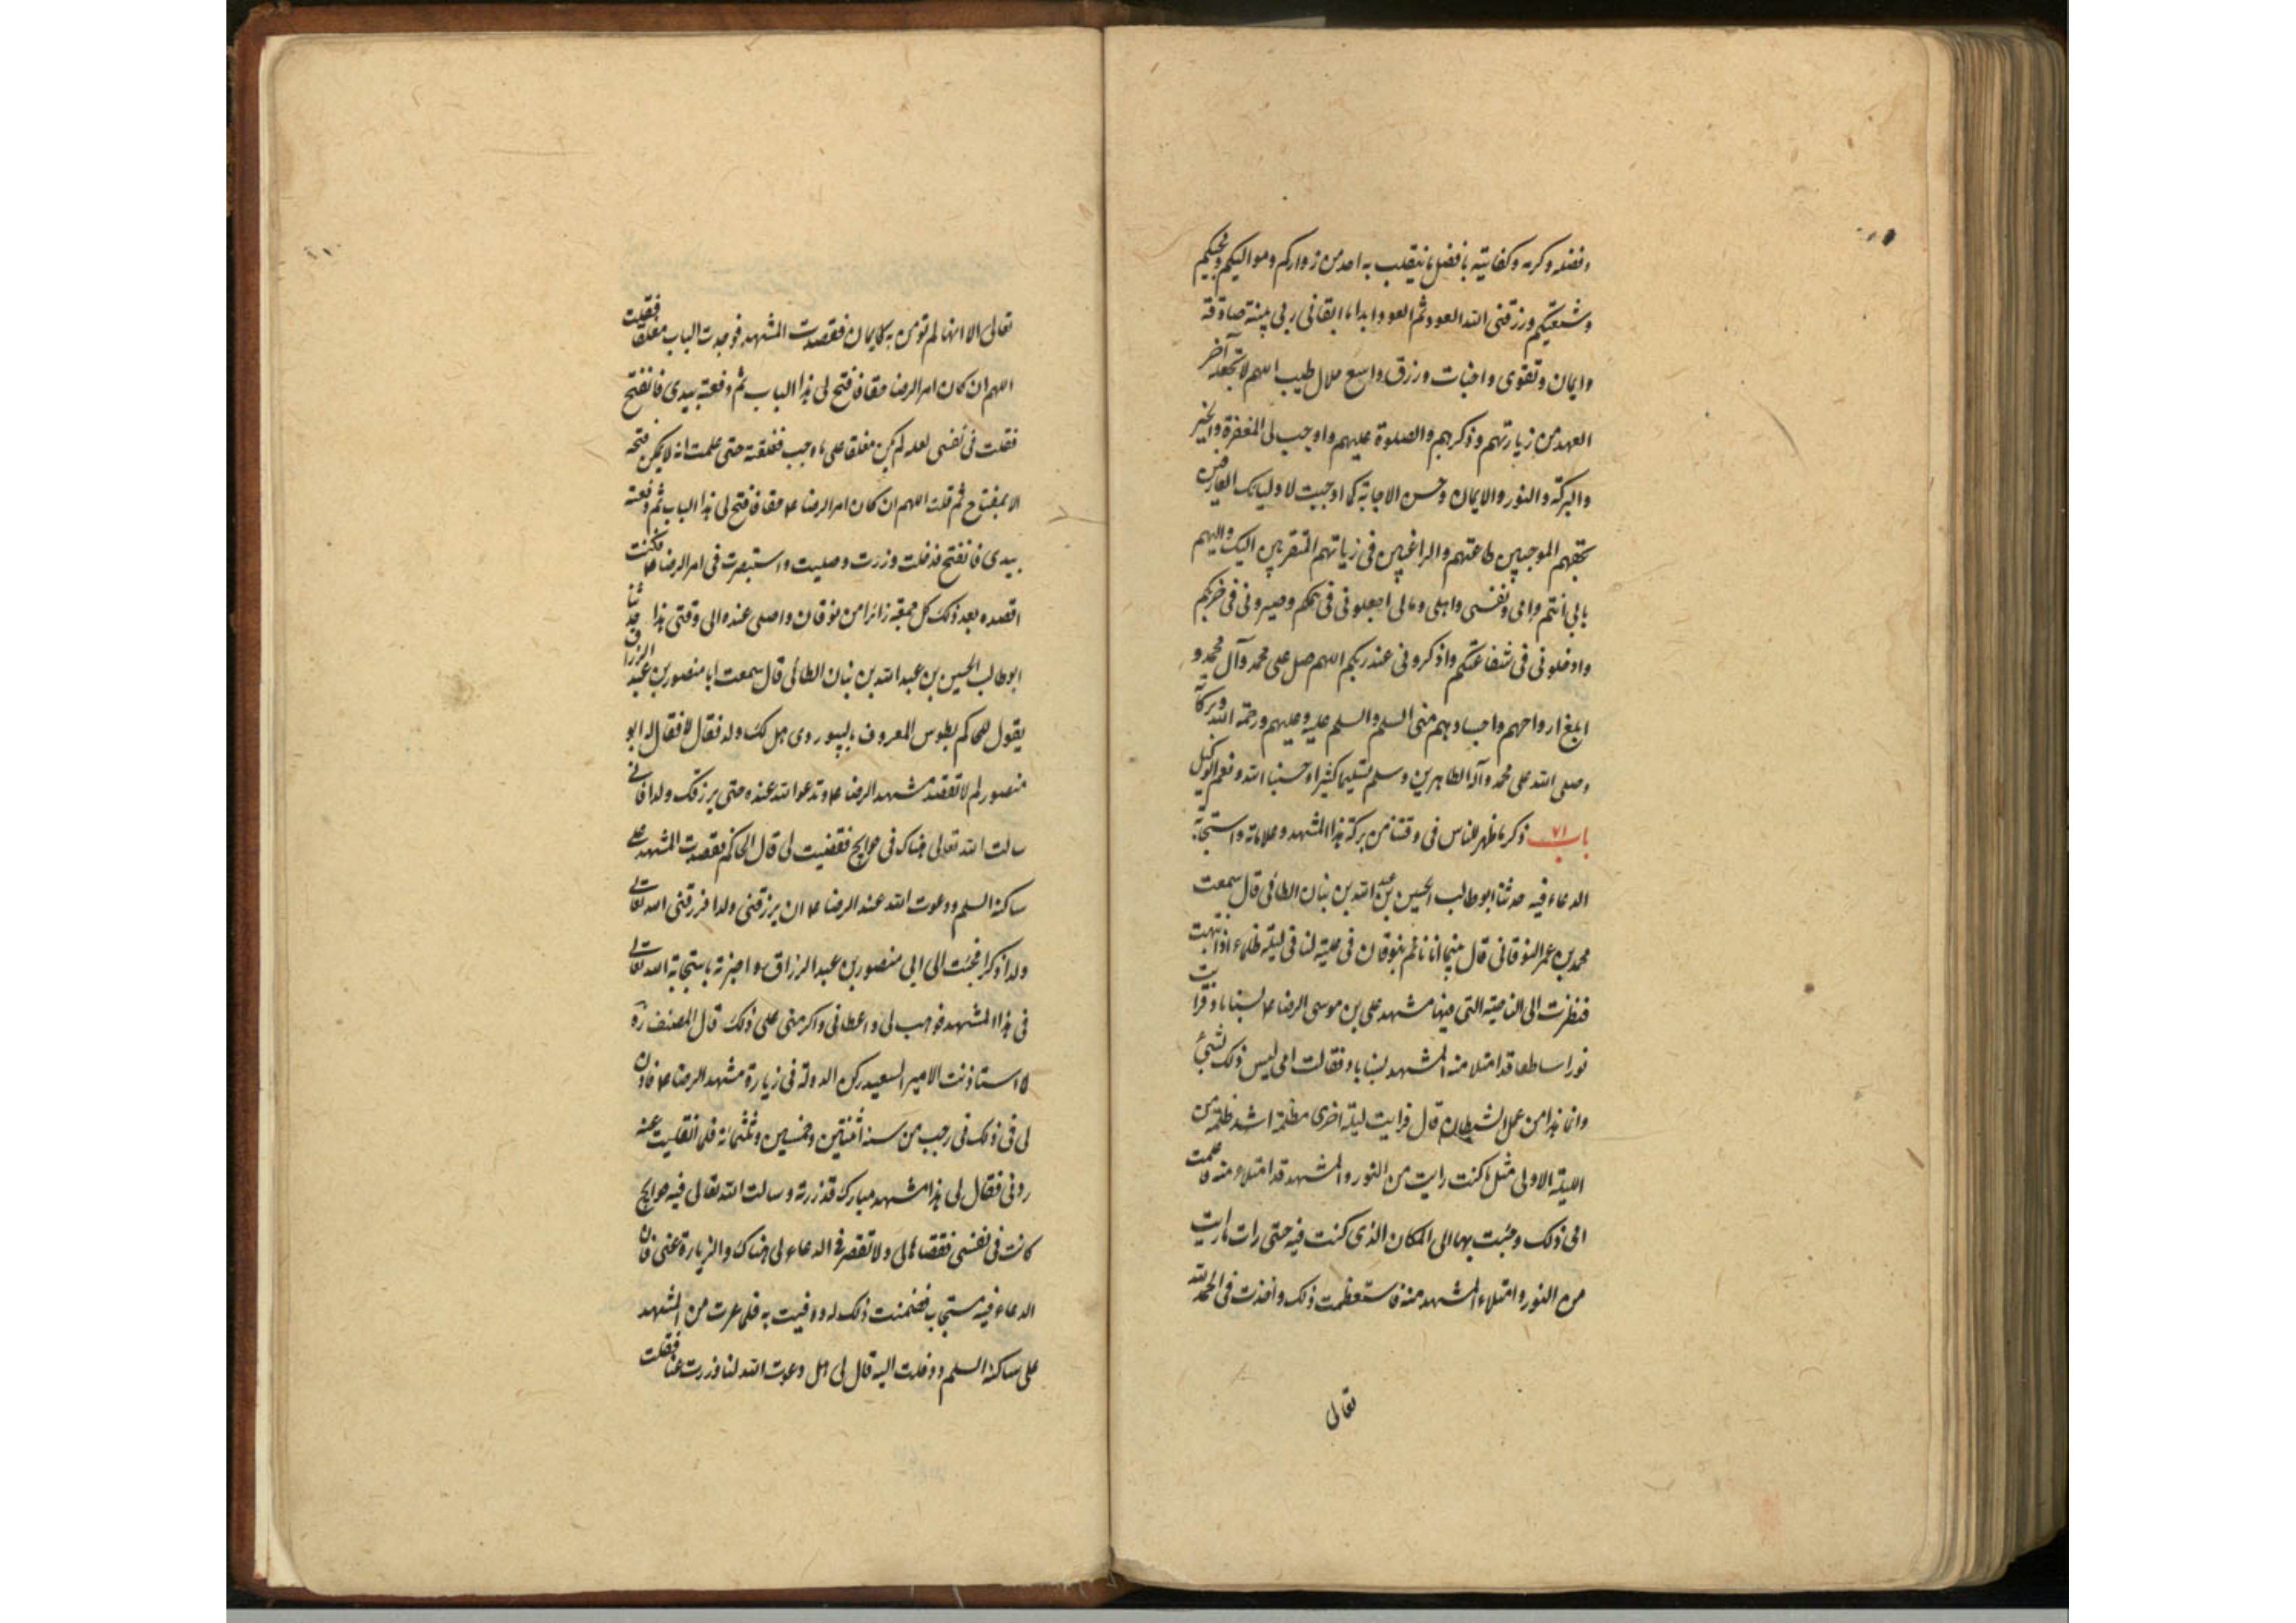 وفضله وكرمه وكفايته بافضل ما ينقلب به احد من زواركم ومواليكم ومحبيكم
وشيعتكم ورزقنى الله العود ثم العود ابدا ما ابقانى ربى بنية صادقة
وايمان وتقوى واخبات ورزق واسع حلال طيب اللهم لا تجعله آخر
العهد من زيارتهم وذكرهم والصلوة عليهم واوجب لى المغفرة والخير
والبركة والنور والايمان وحسن الاجابة كما اوجبت لاوليائك العارفين
بحقهم الموجبين طاعتهم والراغبين فى زياتهم المتقربين اليك واليهم
بابى انتم وامى ونفسى واهلى ومالى اجعلونى فى همكم وصيرونى فى حزبكم
وادخلونى فى شفاعتكم واذكرونى عند ربكم اللهم صل على محمد وآل محمد و
ابلغ ارواحهم واجسادهم منى السلم والسلم عليه وعليهم ورحمة الله وبركاته
وصلى الله على محمد وآله الطاهرين وسلم تسليما كثيرا وحسبنا الله ونعم الوكيل
باب ٧١ ذكر ما ظهر للناس فى وقتنا من بركة هذا المشهد وعلاماته واستجابة
الدعاء فيه حدثنا ابو طالب الحسين بن عبد الله بن بنان الطائى قال سمعت
محمد بن عمر النوقانى قال بينما انا نائم بنوقان فى علية لنا فى ليلة ظلماء اذا انتبهت
فنظرت الى الناحية التى فيها مشهد على بن موسى الرضا ع بسناباد فرايت
نورا ساطعا قد امتلا منه المشهد بسناباد فقالت امى ليس ذلك بشئ
وانما هذا من عمل الشيطان قال فرايت ليلة اخرى مظلمة اشد ظلمة من
الليلة الاولى مثل ما كنت رايت من النور والمشهد قد امتلاء منه فاعلمت
امى ذلك وجئت بها الى المكان الذى كنت فيه حتى رات ما رايت
من النور وامتلاء المشهد منه فاستعظمت ذلك واخذت فى الحمد لله
تعالى
تعالى الا انها لم تومن به كايمان فقصدت المشهد فوجدت الباب مغلقا فقلت
اللهم ان كان امر الرضا حقا فافتح لى هذا الباب ثم دفعته بيدى فانفتح
فقلت فى نفسى لعله لم يكن مغلقا على ما وجب فغلقته حتى علمت انه لا يمكن فتحه
الا بمفتاح ثم قلت اللهم ان كان امر الرضا ع حقا فافتح لى هذا الباب ثم دفعته
بيدى فانفتح فدخلت وزرت وصليت واستبصرت فى امر الرضا ع فكنت
اقصده بعد ذلك كل جمعة زائرا من نوقان واصلى عنده الى وقتى هذا حدثنا
ابو طالب الحسين بن عبد الله بن بنان الطائى قال سمعت ابا منصور بن عبد الرزاق
يقول للحاكم بطوس المعروف بالبيوردى هل لك ولد فقال لا فقال له ابو
منصور لم لا تقصد مشهد الرضا ع وتدعو الله عنده حتى يرزقك ولدا فانى
سالت الله تعالى هناك فى حوايج فقضيت لى قال الحاكم فقصدت المشهد على
ساكنه السلم ودعوت الله عند الرضا ع ان يرزقنى ولدا فرزقنى الله تعالى
ولدا ذكرا فجئت الى ابى منصور بن عبد الرزاق واخبرته باستجابة الله تعالى
فى هذا المشهد فوهب لى واعطانى واكرمنى على ذلك قال المصنف ره
لما استاذنت الامير السعيد ركن الدولة فى زيارة مشهد الرضا ع فاذن
لى فى ذلك فى رجب من سنة اثنتين وخمسين وثلثمائة فلما انقلبت عنه
ردنى فقال لى هذا مشهد مبارك قد زرته وسالت الله تعالى فيه حوايج
كانت فى نفسى فقضاها لى ولا تقصر فى الدعاء لى هناك والزيارة عنى فان
الدعاء فيه مستجاب فضمنت ذلك له ووفيت به فلما عدت من المشهد
على ساكنه السلم ودخلت اليه قال لى هل دعوت الله لنا وزرت عنا فقلت